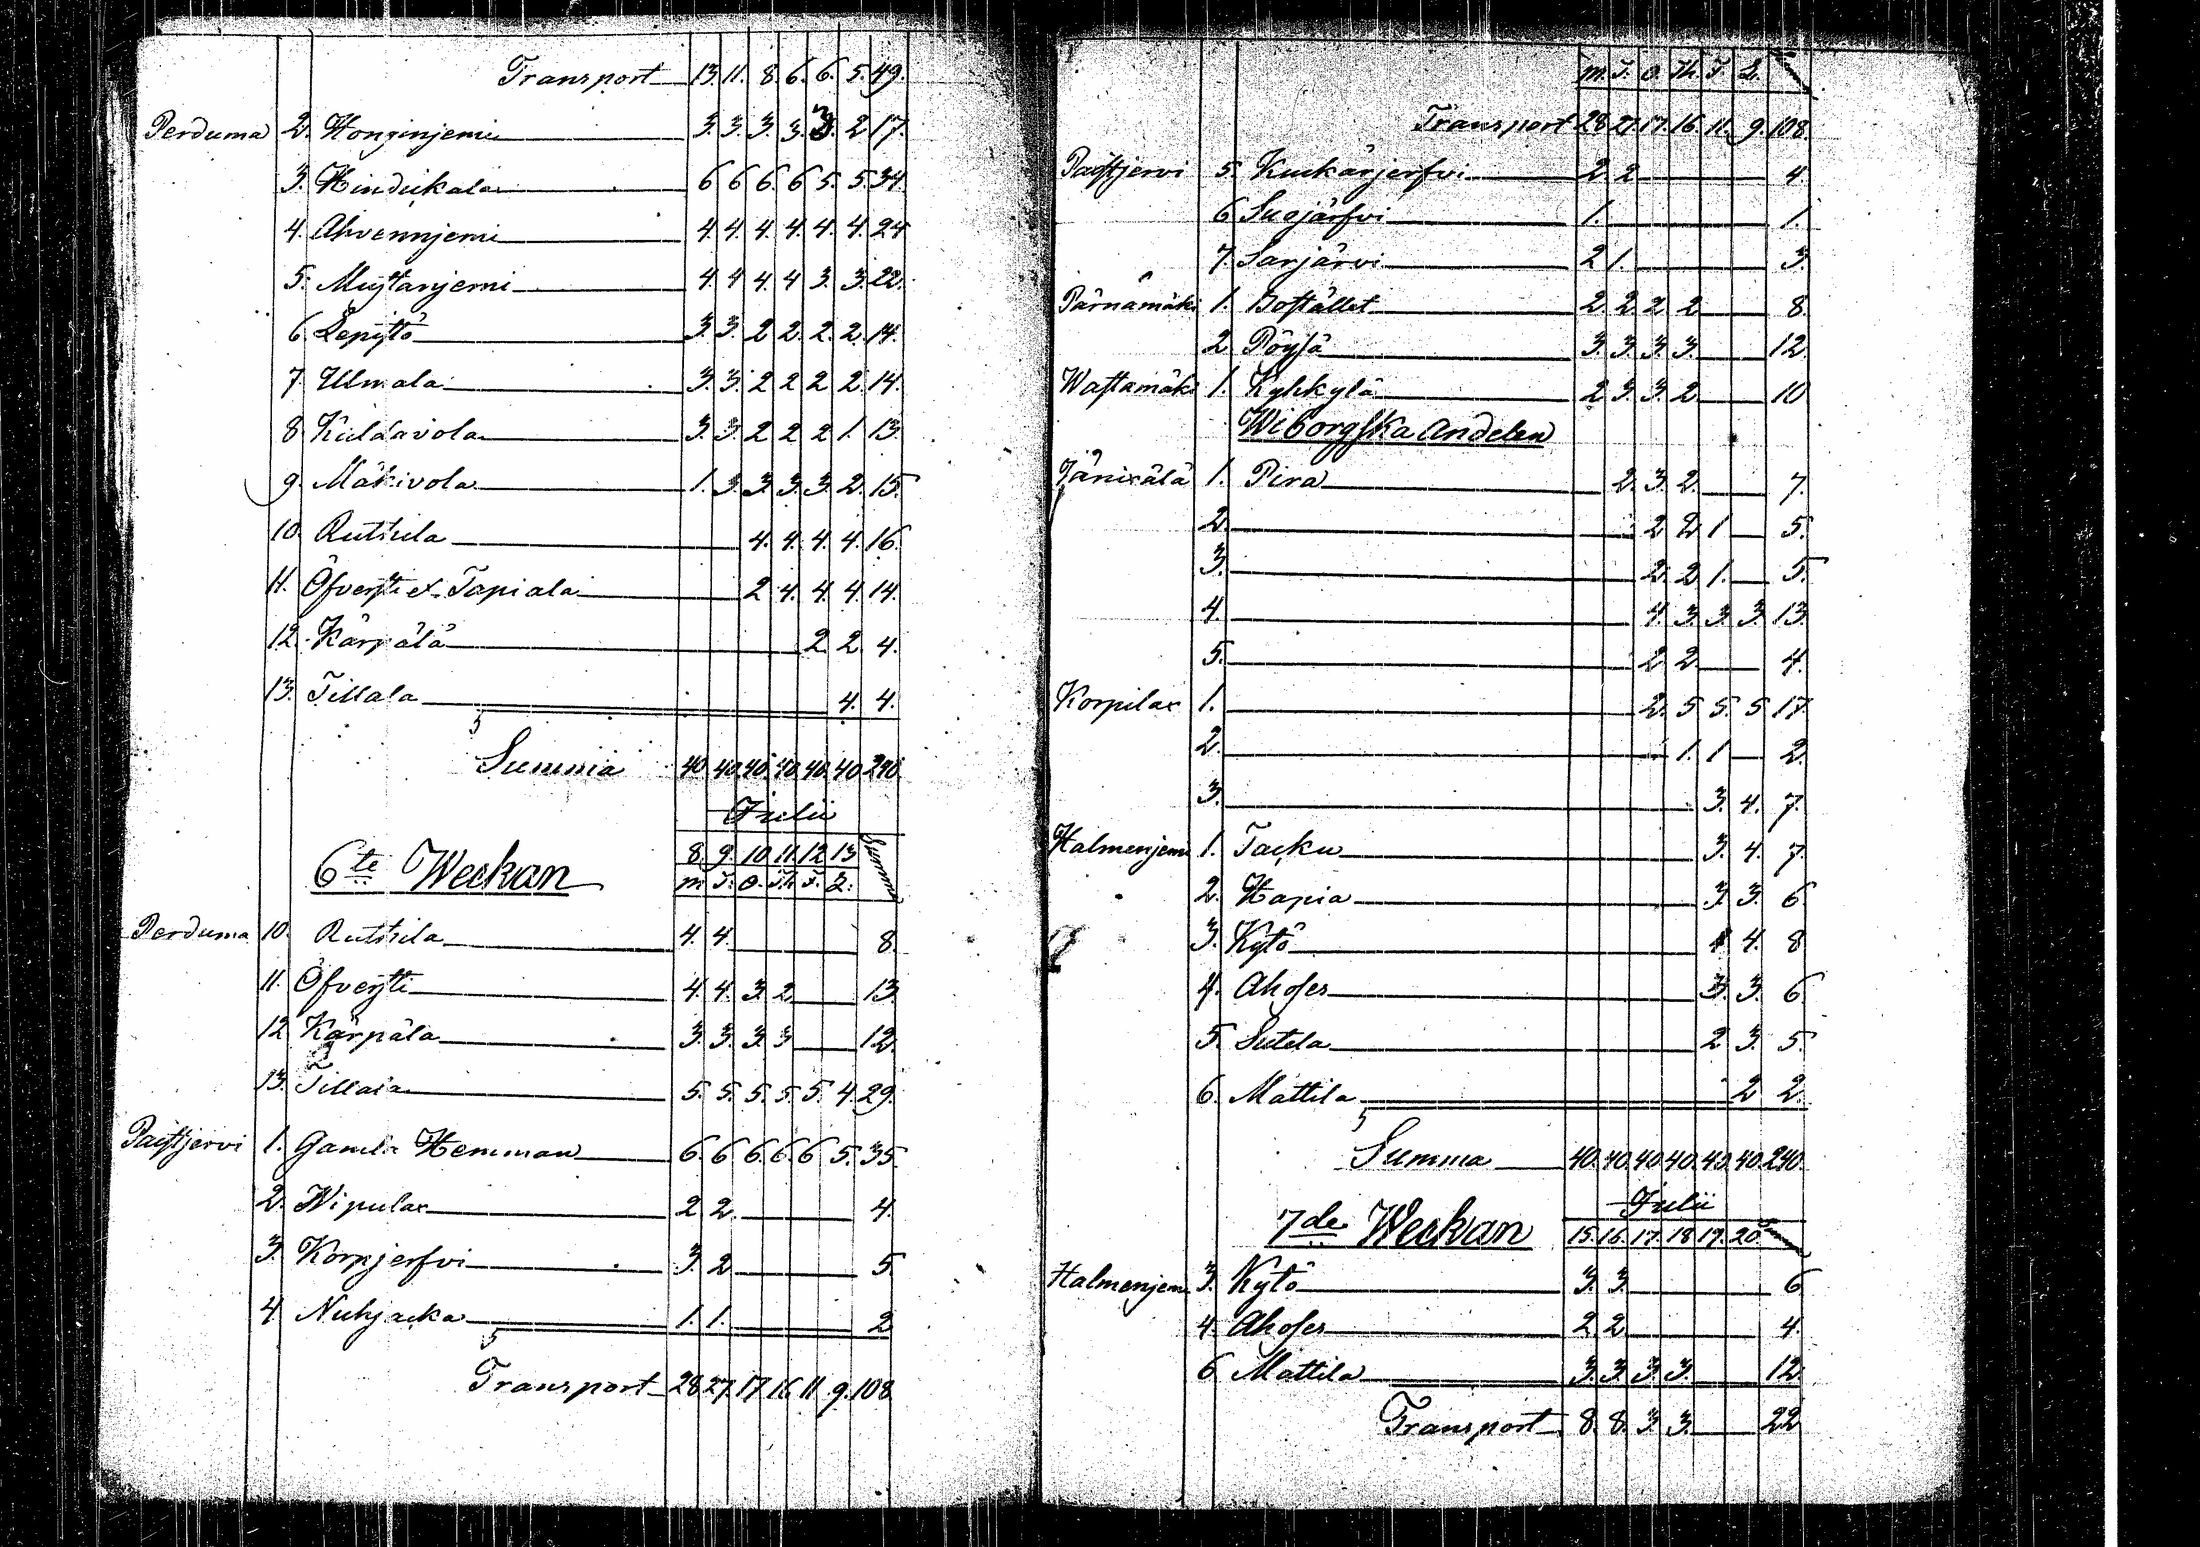 Transport 13. 11. 8. 6. 6. 5. 49.
Perduma 2. Honginjemi 3. 3. 3. 3. 3. 2. 17.
3. Hindukala 6 6 6. 6 5. 5. 34.
4. Ahvennjemi 4. 4. 4. 4. 4. 4. 24
5. Mustanjemi 4. 4 4. 4 3. 3. 22.
6. Lepistö 3. 3. 2 2. 2. 2. 14.
7. Ulmala 3. 3. 2 2 2 2. 14.
8. Kuldavola 3. 3. 2 2 2 1. 13.
9. Mäkivola 1. 3. 3. 3. 3. 2. 15.
10. Ruthila 4. 4. 4. 4. 16.
11. Öfversti et Tapiala 2 4. 4. 4. 14.
12. Kärpälä 2. 2. 4.
13. Tillala 4. 4.
Summa 40. 40. 40. 40. 40. 40 240
Julii
6te Weckan 8. 9. 10. 11. 12. 13 Summa
M. T. O. Th. F. L.
Perduma 10. Ruthila 4. 4. 8.
11. Öfversti 4. 4. 3. 2. 13.
12 Kärpäla 3. 3. 3. 3 12.
13. Tillala 5. 5. 5. 5. 5. 4. 29.
Paistjervi 1. Gamla Hemman 6. 6 6. 6. 6 5. 35.
2. Wipulax 2 2. 4.
3. Korpjerfvi 3. 2 5.
4. Nuhjacka 1. 1. 2
Transport 28 27. 17. 16 11 9. 108
M. T. O. Th. F. L.
Transport 28. 27. 17. 16. 11. 9. 108.
Paistjervi 5. Kuckärjerfvi 2. 2 4.
6 Suojärfvi 1. 1.
7. Sarjärvi 2 1. 3.
Pärnämäki 1. Bostället 2. 2. 2. 2 8.
2. Pöysä 3. 3. 3. 3. 12.
Wastamäki 1. Kyhkylä 2 3. 3. 2 10
Wiborgska Andelen
Jänixälä 1. Pira 2. 3. 2. 7.
2. 2 2 1 5.
3. 2. 2 1. 5.
4. 4. 3. 3. 3. 13.
5. 2 2 4.
Korpilax 1. 2. 5 5. 5 17
2. 1. 1 2.
3. 3. 4. 7.
Halmenjemi 1. Tacku 3. 4. 7.
2. Hapia 3 3. 6
3. Kytö 4 4. 8
4. Ahofer 3. 3. 6.
5. Sutela 2 3. 5.
6. Mattila 2 2.
Summa 40. 40. 40. 40. 40. 40. 240.
Julii
7de Weckan 15. 16. 17. 18 19. 20
Halmenjemi 3. Kytö 3. 3. 6
4. Ahofer 2 2 4.
6 Mattila 3. 3. 3. 3. 12.
Transport 8. 8. 3. 3. 22